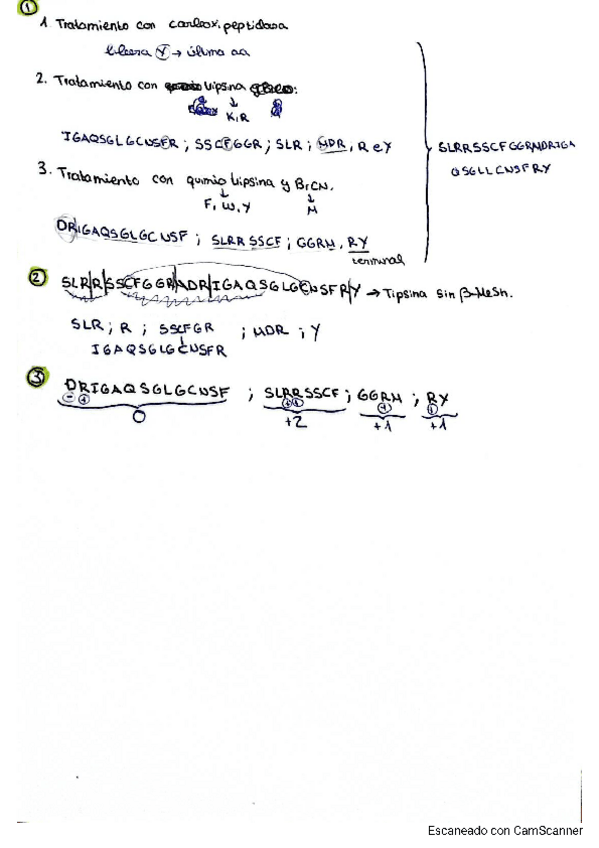 ①
1. Tratamiento con carboxipeptidasa
libera Y → último aa
2. Tratamiento con tripsina :
↓
K,R
IGAQSGLGCNSFR ; SSCFGGR ; SLR ; MDR, R e Y
3. Tratamiento con quimiotripsina y BrCN.
↓ ↓
F, W, Y M
DRIGAQSGLGCNSF ; SLRRSSCF ; GGRM, RY
terminal
SLRRSSCFGGRMDRIGA
QSGLLCNSFRY
② SLR|R|SSCFGGR|MDR|IGAQSGLGCNSFR|Y → Tipsina sin β-MeSh.
SLR ; R ; SSCFGR ; MDR ; Y
IGAQSGLGCNSFR
③ DRIGAQSGLGCNSF ; SLRRSSCF ; GGRM ; RY
- + ++ + +
0 +2 +1 +1
Escaneado con CamScanner